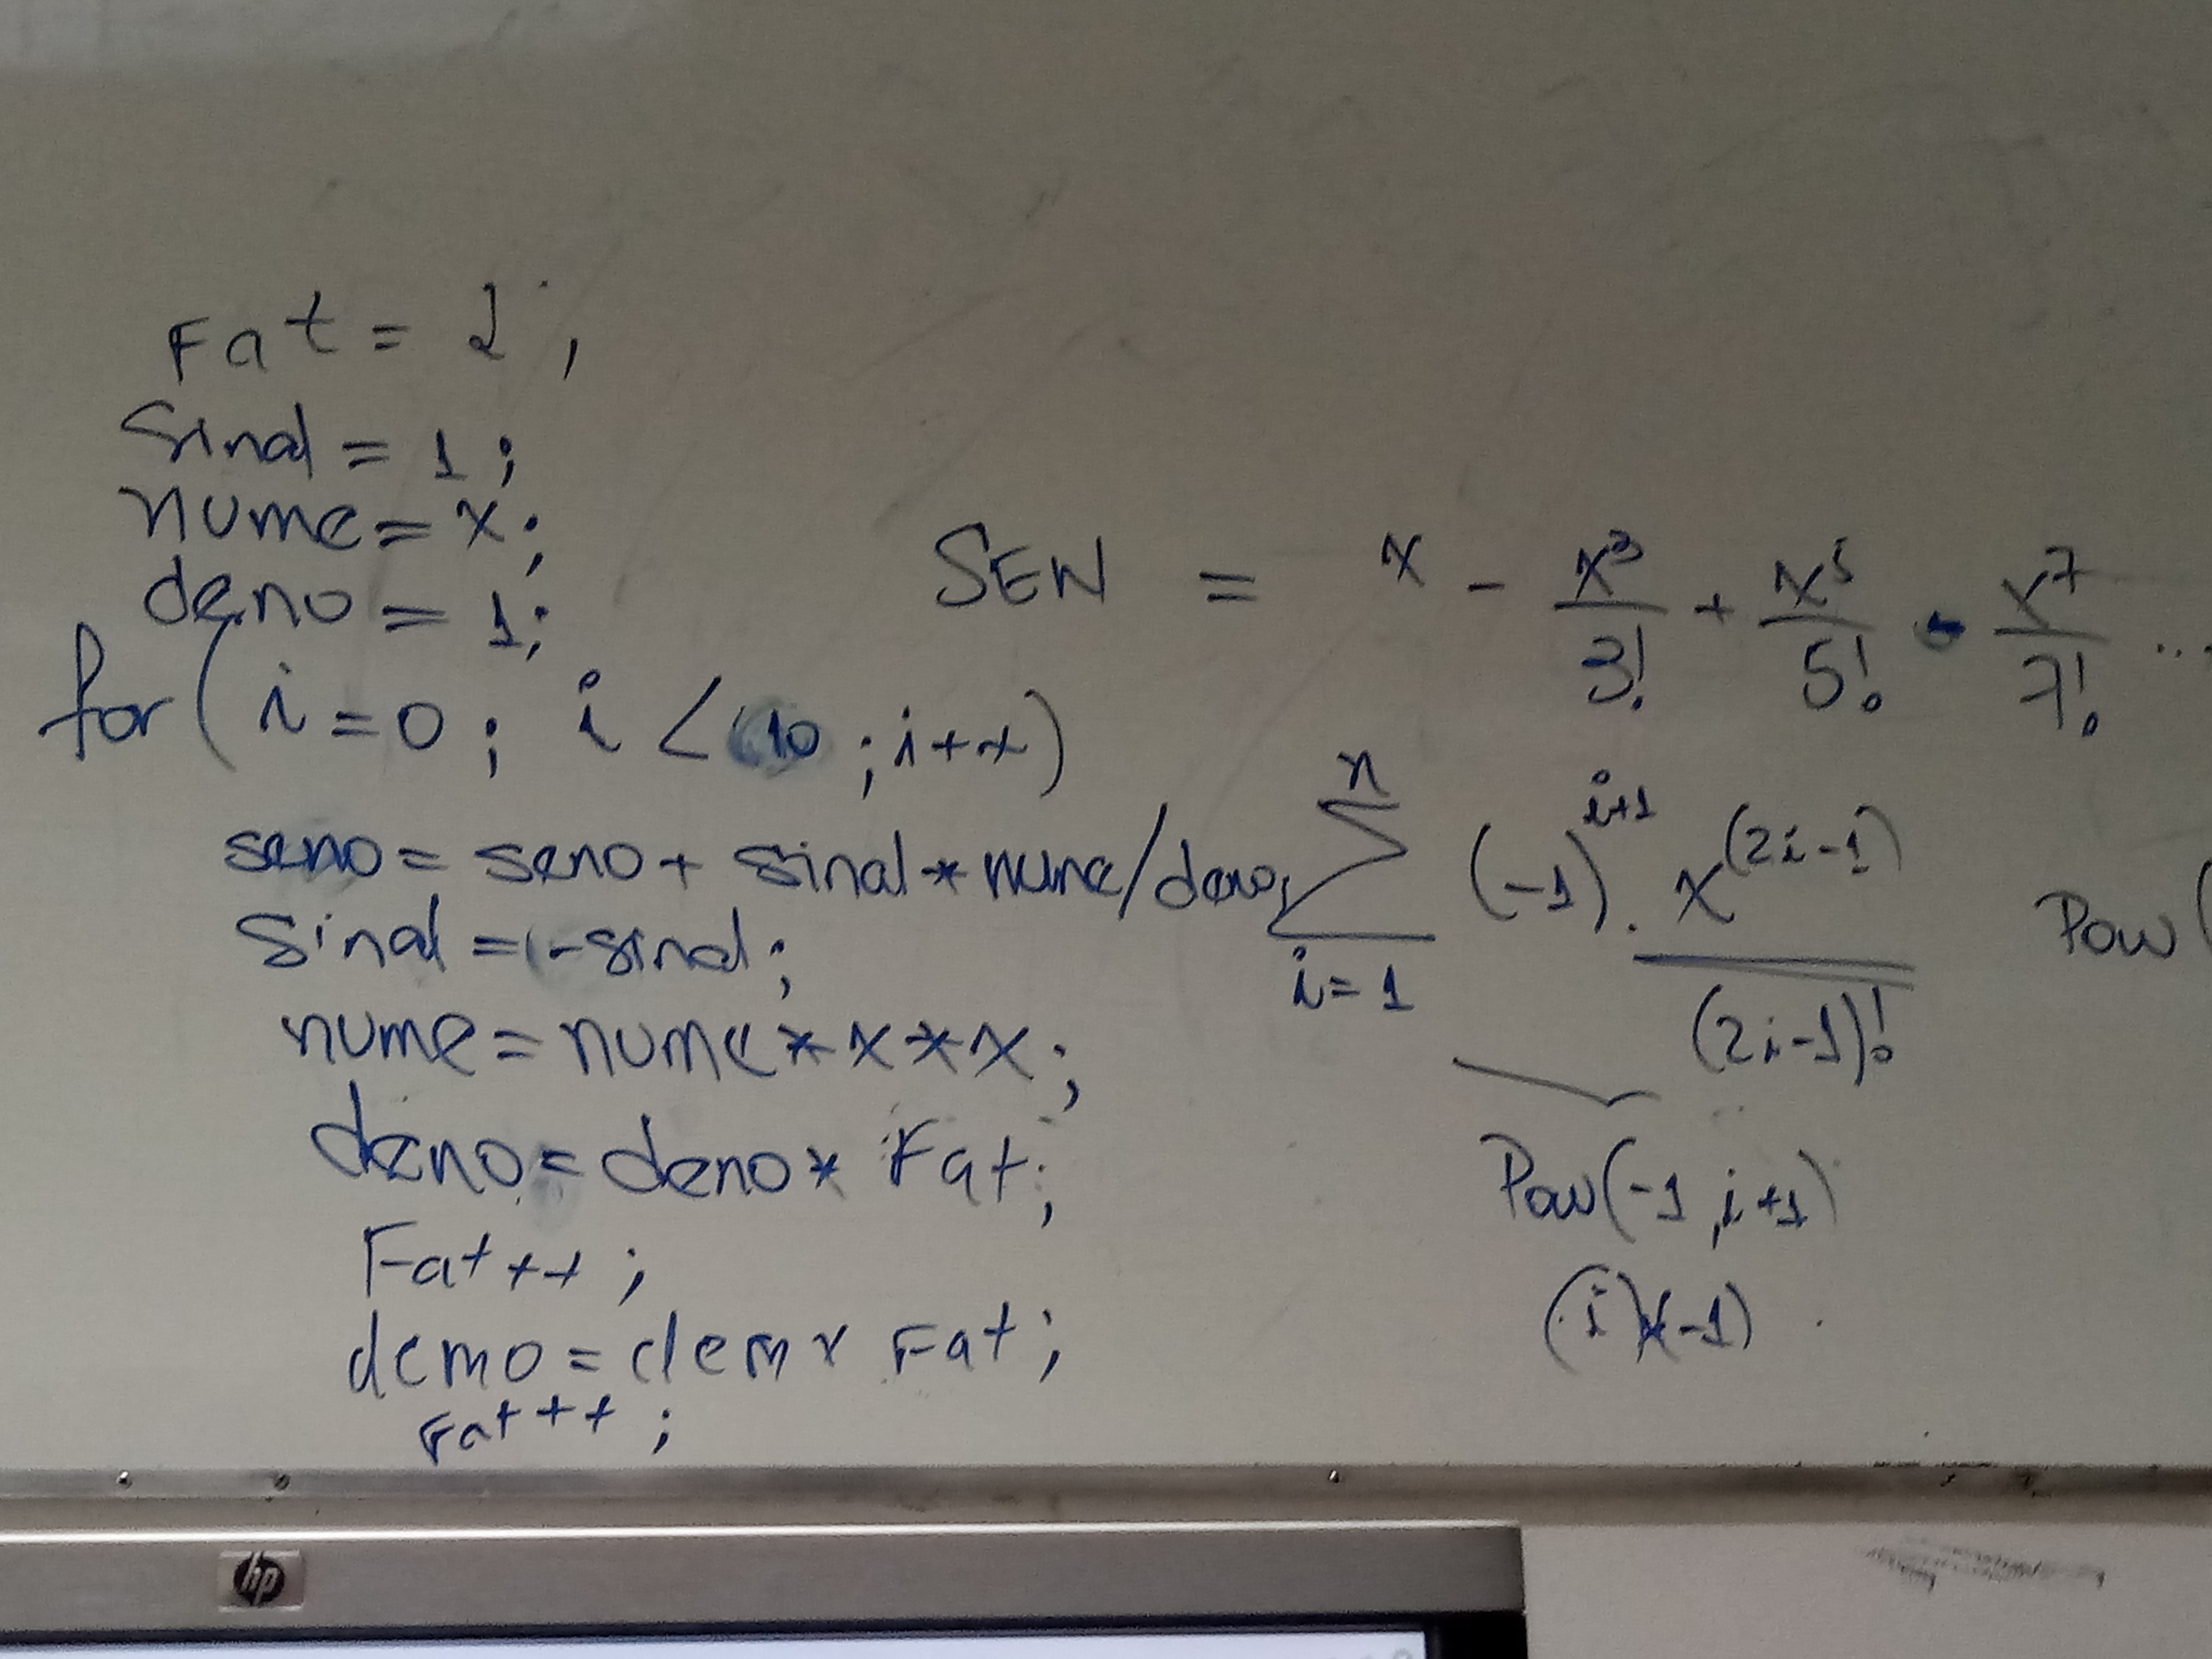 Fat = 2;
Sinal = 1;
nume = x;
deno = 1;
for( i = 0 ; i < 10 ; i++)
seno = seno + sinal * nume/deno;
Sinal = -sinal;
nume = nume * x * x;
deno = deno * Fat;
Fat ++ ;
demo = dem * Fat;
Fat ++ ;
SEN = x - x³/3! + x⁵/5! - x⁷/7! ...
n
∑ (-1)^(i+1) . x^(2i-1) / (2i-1)!
i = 1
Pow(
Pow(-1, i+1)
(i)*(-1)
hp